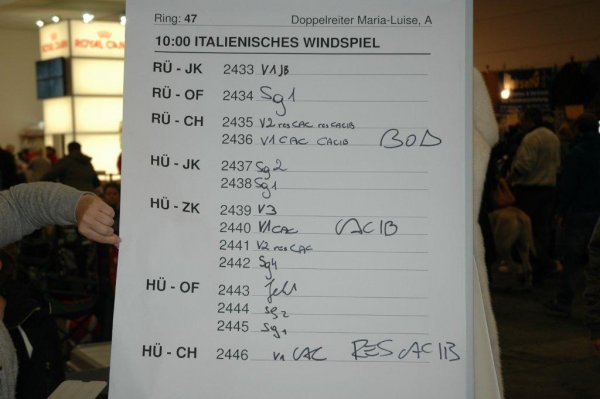 Ring: 47 Doppelreiter Maria-Luise, A
10:00 ITALIENISCHES WINDSPIEL
RÜ - JK 2433 V1 JB
RÜ - OF 2434 Sg1
RÜ - CH 2435 V2 res CAC res CACIB
2436 V1 CAC CACIB BOB
HÜ - JK 2437 Sg2
2438 Sg1
HÜ - ZK 2439 V3
2440 V1 CAC CACIB
2441 V2 res CAC
2442 Sg4
HÜ - OF 2443 fehlt
2444 Sg2
2445 Sg1
HÜ - CH 2446 V1 CAC RES CACIB
ROYAL CANIN